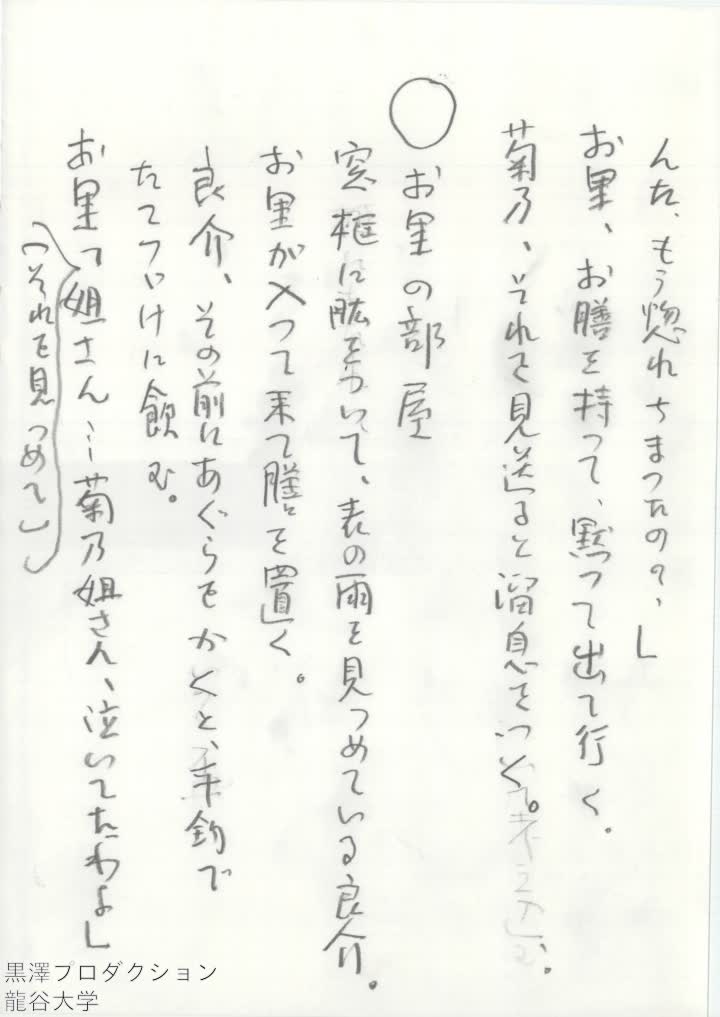 んた、もう惚れちまつたの?、」
お里、お膳を持つて、黙つて出て行く。
菊乃、それを見送ると溜息をつく。
○お里の部屋
窓框に肱をついて、表の雨を見つめている良介。
お里が入つて来て膳を置く。
良介、その前にあぐらをかくと、手酌で
たてつゞけに飲む。
お里「姐さん…菊乃姐さん、泣いてたわよ」
(それを見つめて)
黒澤プロダクション
龍谷大学